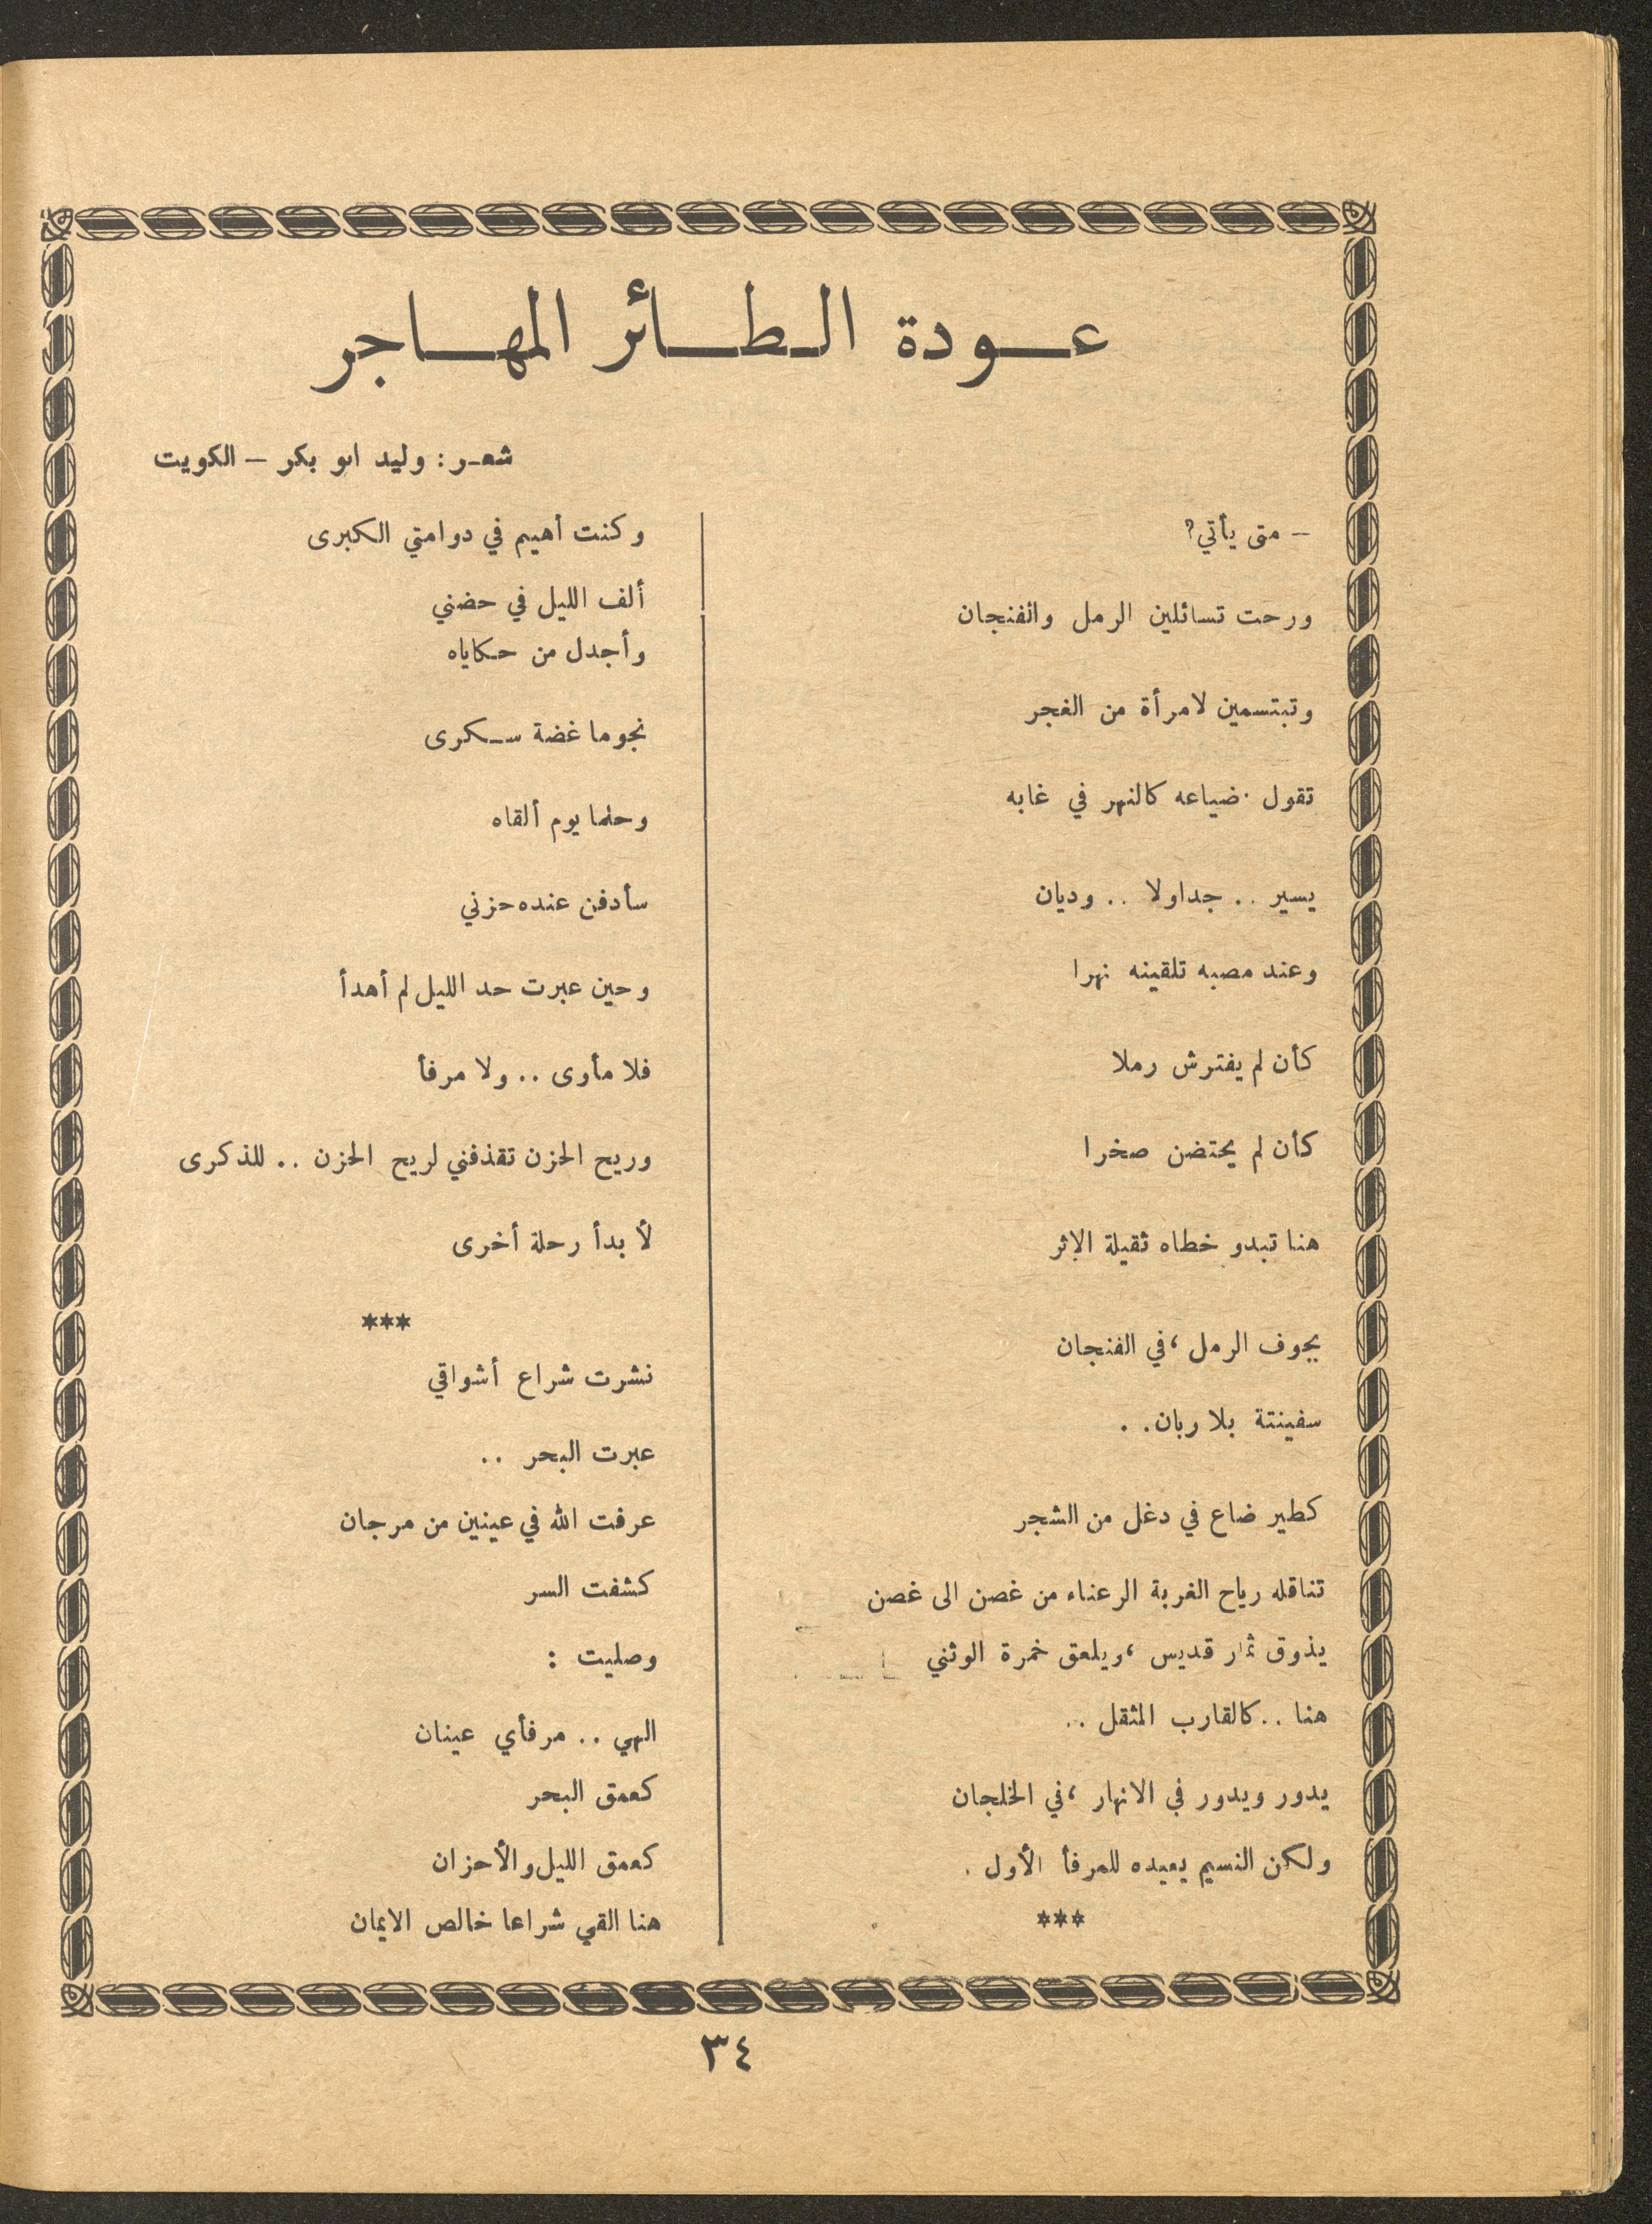 عودة الطائر المهاجر
شعر : وليد ابو بكر – الكويت
– متى يأتي؟
ورحت تسائلين الرمل والفنجان
وتبتسمين لامرأة من الغجر
تقول . ضياعه كالنهر في غابه
يسير .. جداولا .. وديان
وعند مصبه تلقينه نهرا
كأن لم يفترش رملا
كأن لم يحتضن صخرا
هنا تبدو خطاه ثقيلة الاثر
بجوف الرمل ، في الفنجان
سفينتة بلا ربان . .
كطير ضاع في دغل من الشجر
تناقله رياح الغربة الرعناء من غصن الى غصن
يذوق ثمار قديس ، ويلعق خمرة الوثني
هنا .. كالقارب المثقل ..
يدور ويدور في الانهار ، في الخلجان
ولكن النسيم يعيده للمرفأ الأول .
***
وكنت أهيم في دوامتي الكبرى
ألف الليل في حضني
وأجدل من حكاياه
نجوما غضة سكرى
وحلما يوم ألقاه
سأدفن عنده حزني
وحين عبرت حد الليل لم أهدأ
فلا مأوى .. ولا مرفأ
وريح الحزن تقذفني لريح الحزن .. للذكرى
لأبدأ رحلة أخرى
***
نشرت شراع أشواقي
عبرت البحر ..
عرفت الله في عينين من مرجان
كشفت السر
وصليت :
الهي .. مرفأي عينان
كعمق البحر
كعمق الليل والأحزان
هنا القي شراعا خالص الايمان
٣٤